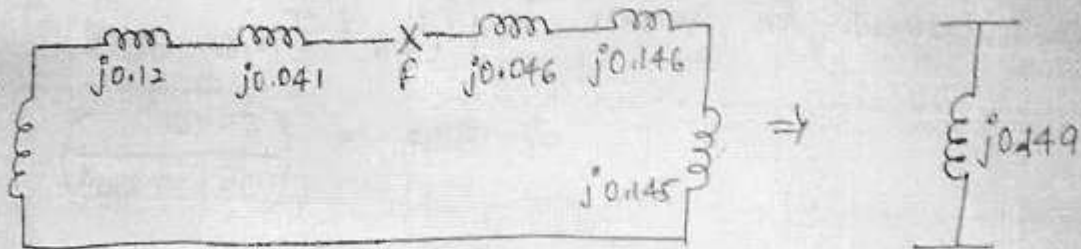 j0.12 j0.041 X j0.046 j0.146
f
⇒ j0.149
j0.145